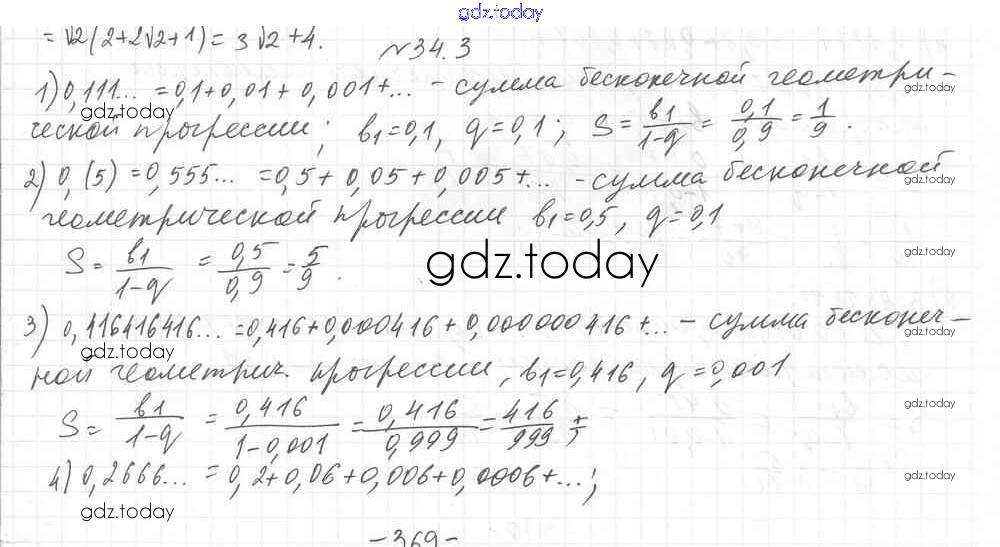 gdz.today
= √2(2+2√2+1) = 3√2+4.
№34.3
1) 0,111... = 0,1+0,01+0,001+... - сумма бесконечной геометри-
gdz.today gdz.today
ческой прогрессии; b1=0,1, q=0,1; S = b1/(1-q) = 0,1/0,9 = 1/9.
2) 0,(5) = 0,555... = 0,5+0,05+0,005+... - сумма бесконечной
gdz.today gdz.today
геометрической прогрессии b1=0,5, q=0,1
S = b1/(1-q) = 0,5/0,9 = 5/9.
gdz.today gdz.today
3) 0,416416416... = 0,416+0,000416+0,000000416+... - сумма бесконеч-
gdz.today gdz.today
ной геометрич. прогрессии, b1=0,416, q=0,001
S = b1/(1-q) = 0,416/(1-0,001) = 0,416/0,999 = 416/999
gdz.today gdz.today
4) 0,2666... = 0,2+0,06+0,006+0,0006+...;
gdz.today gdz.today
-369-